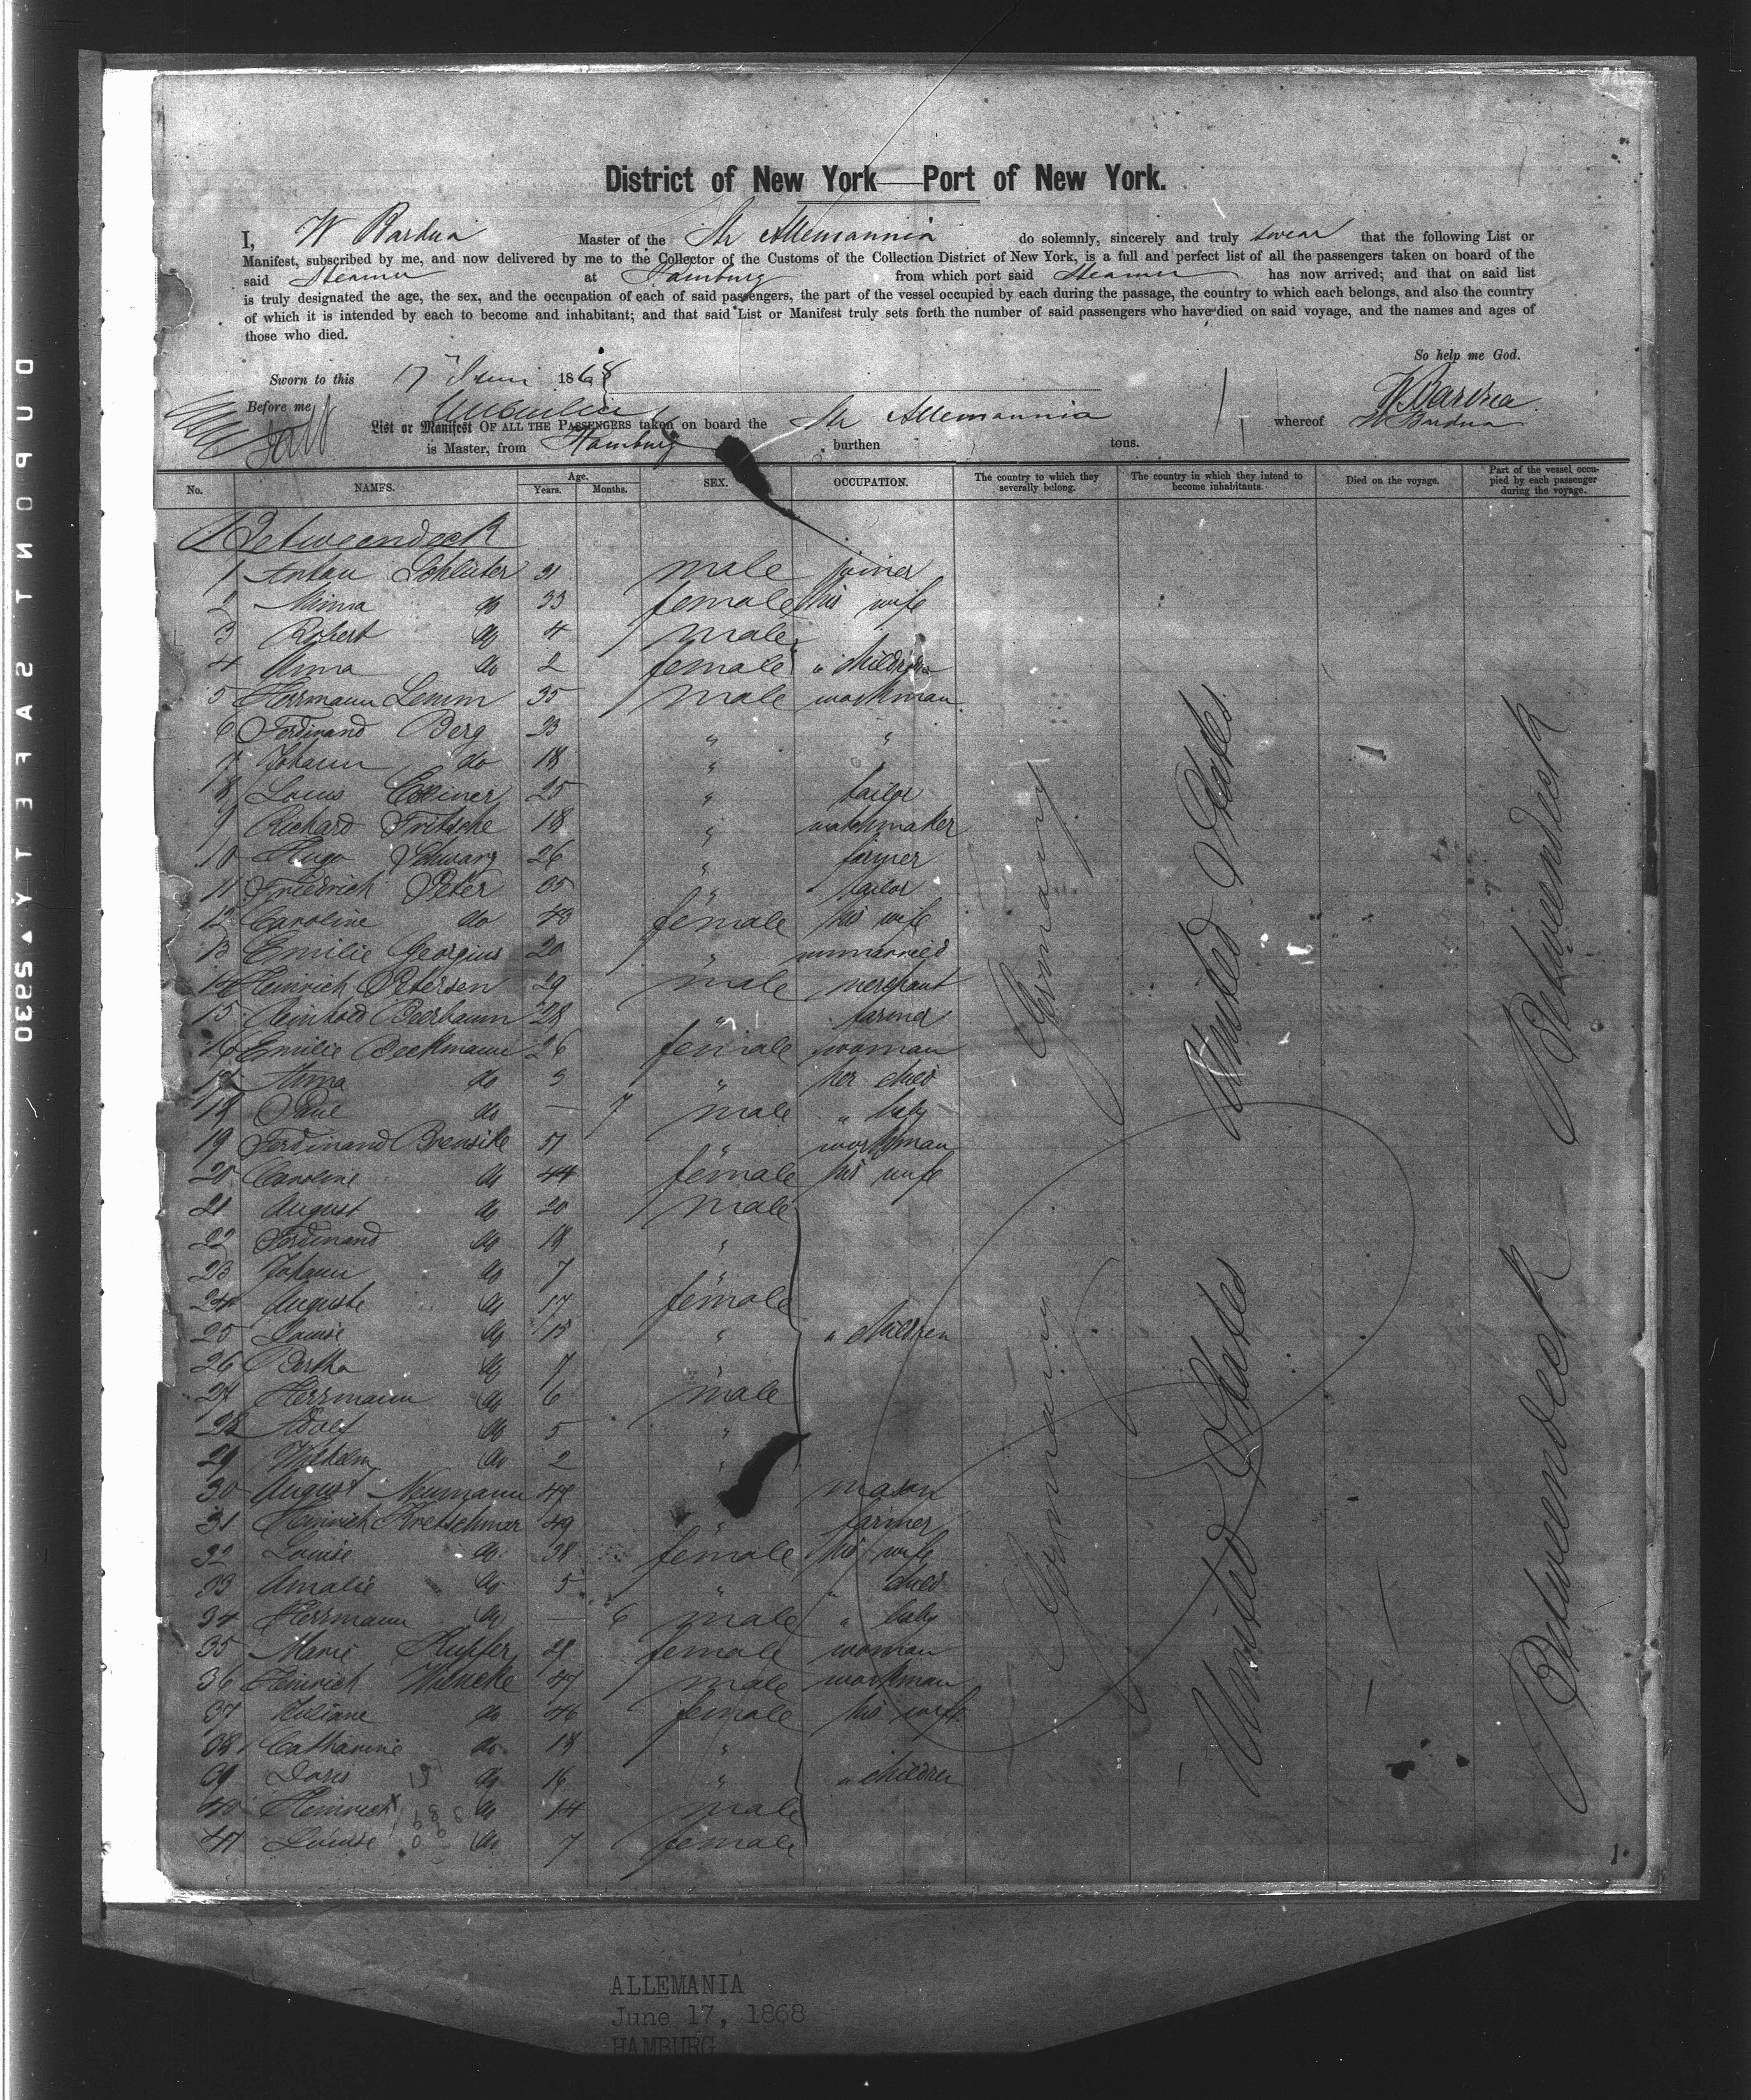 District of New York—Port of New York.
I, W Bardua Master of the Str Allemannia do solemnly, sincerely and truly swear that the following List or
Manifest, subscribed by me, and now delivered by me to the Collector of the Customs of the Collection District of New York, is a full and perfect list of all the passengers taken on board of the
said Steamer at Hamburg from which port said Steamer has now arrived; and that on said list
is truly designated the age, the sex, and the occupation of each of said passengers, the part of the vessel occupied by each during the passage, the country to which each belongs, and also the country
of which it is intended by each to become and inhabitant; and that said List or Manifest truly sets forth the number of said passengers who have died on said voyage, and the names and ages of
those who died.
So help me God.
Sworn to this 17 Juni 1868
W Bardua
Before me
List or Manifest OF ALL THE PASSENGERS taken on board the Str Allemannia whereof W Bardua
is Master, from Hamburg burthen tons.
No. NAMES. Age. Years. Months. SEX. OCCUPATION. The country to which they severally belong. The country in which they intend to become inhabitants. Died on the voyage. Part of the vessel occupied by each passenger during the voyage.
Betweendeck
1 Anton Schlüter 31 male joiner
2 Minna do 33 female his wife
3 Robert do 4 male
4 Anna do 2 female " children
5 Herrmann Lemm 35 male workman
6 Ferdinand Berg 23 " "
7 Johann do 18 " "
8 Louis 25 " tailor
9 Richard Fritsche 18 " watchmaker
10 Hugo Schwarz 26 " farmer
11 Friedrich Peter 35 " tailor
12 Caroline do 43 female his wife
13 Emilie Georgius 20 " unmarried
14 Heinrich Petersen 29 male merchant
15 Reinhold Beerbaum 28 " farmer
16 Emilie Beckmann 26 female woman
17 Anna do 3 " her child
18 Paul do — 7 male " baby
19 Ferdinand Brensike 51 " workman
20 Caroline do 44 female his wife
21 August do 20 male
22 Ferdinand do 18 "
23 Johann do 7 "
24 Auguste do 17 female
25 Louise do 15 " " children
26 Bertha do 7 "
27 Herrmann do 6 male
28 Adolf do 5 "
29 Wilhelm do 2 "
30 August Neumann 47 " mason
31 Heinrich Kretschmar 49 " farmer
32 Louise do 38 female his wife
33 Amalie do 5 " " child
34 Herrmann do — 6 male " baby
35 Marie Kupfer 28 female woman
36 Heinrich Wilucke 47 male workman
37 Juliane do 46 female his wife
38 Catharine do 18 "
39 Doris do 16 " " children
40 Heinrich do 14 male
41 Louise do 7 female
Germany
United States
Betweendeck
Germany
United States
Betweendeck
1.
ALLEMANIA
June 17, 1868
HAMBURG
DUPONT SAFETY ▲ S25D